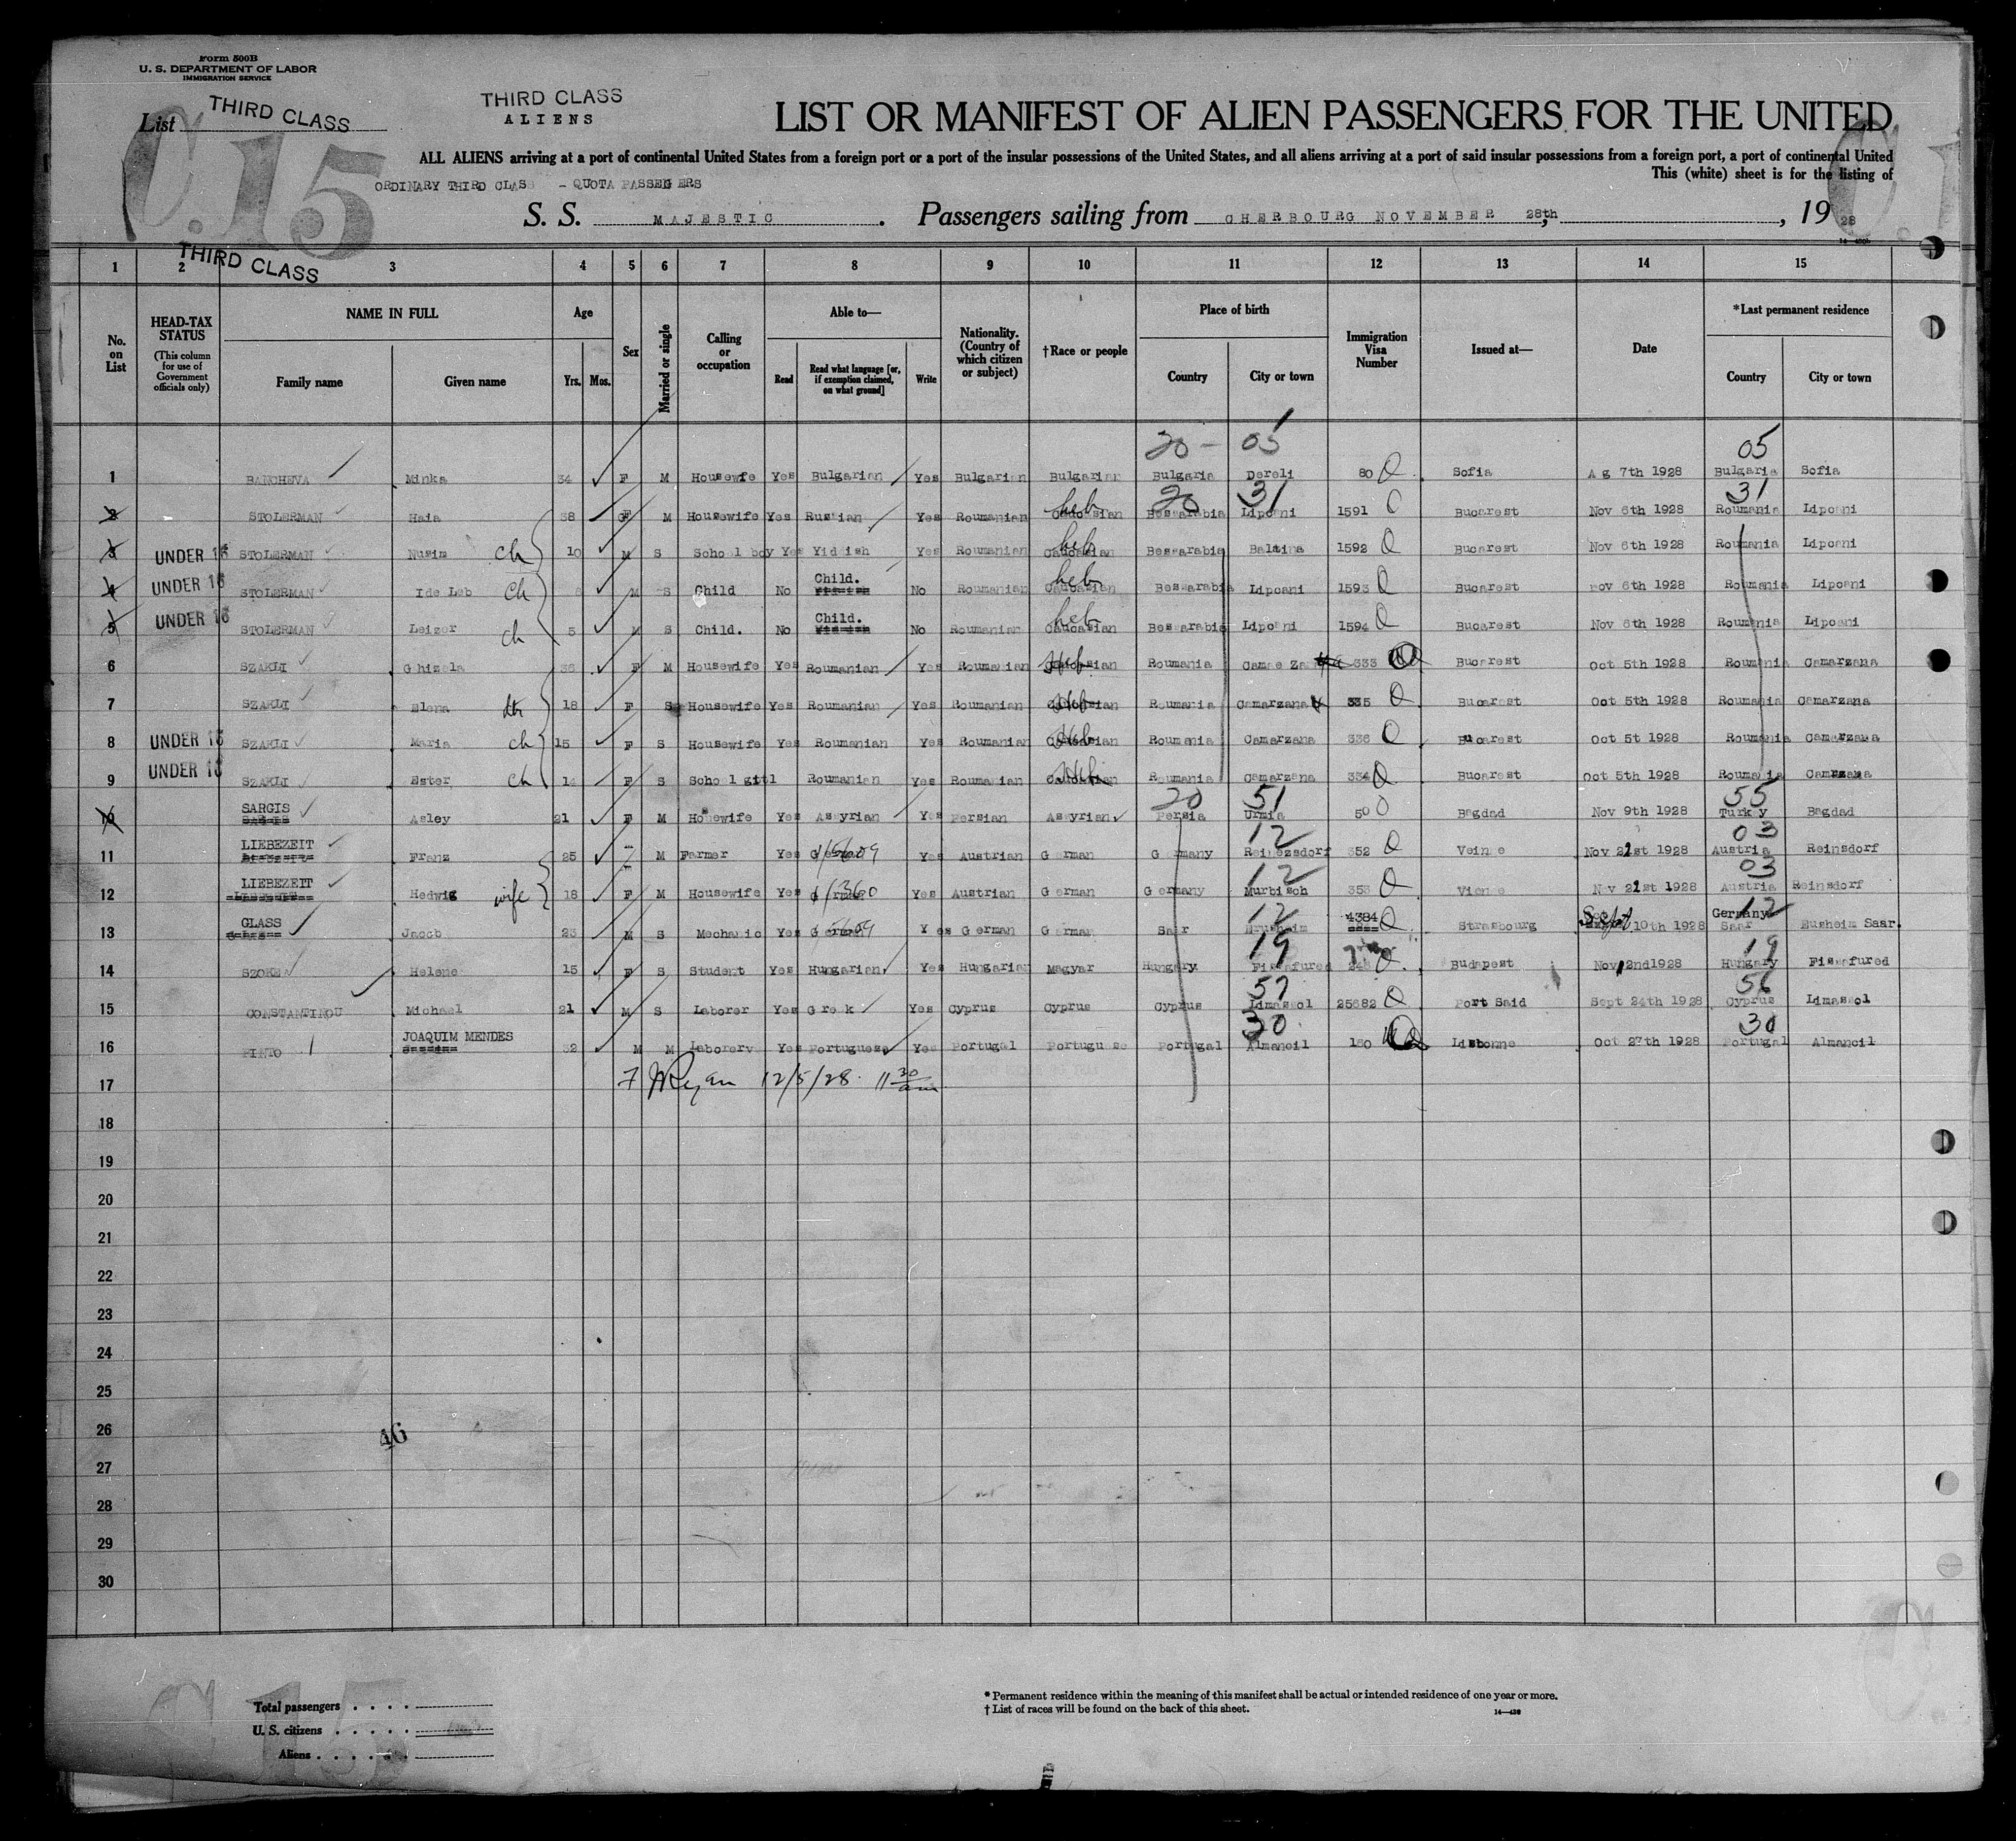 Form 500B
U. S. DEPARTMENT OF LABOR
IMMIGRATION SERVICE
List THIRD CLASS
C.15
THIRD CLASS
ALIENS
LIST OR MANIFEST OF ALIEN PASSENGERS FOR THE UNITED
ALL ALIENS arriving at a port of continental United States from a foreign port or a port of the insular possessions of the United States, and all aliens arriving at a port of said insular possessions from a foreign port, a port of continental United
This (white) sheet is for the listing of
ORDINARY THIRD CLASS - QUOTA PASSENGERS
S. S. MAJESTIC. Passengers sailing from CHERBOURG NOVEMBER 28th, 1928
THIRD CLASS
1 2 3 4 5 6 7 8 9 10 11 12 13 14 15
No. on List
HEAD-TAX STATUS (This column for use of Government officials only)
NAME IN FULL Family name Given name
Age Yrs. Mos.
Sex
Married or single
Calling or occupation
Able to— Read Read what language [or, if exemption claimed, on what ground] Write
Nationality. (Country of which citizen or subject)
†Race or people
Place of birth Country City or town
Immigration Visa Number
Issued at—
Date
*Last permanent residence Country City or town
20 - 05 05
1 BANCHEVA Minka 34 F M Housewife Yes Bulgarian Yes Bulgarian Bulgarian Bulgaria Dereli 80 Sofia A g 7th 1928 Bulgaria Sofia
20 31 31
2 STOLERMAN Haia 38 F M Housewife Yes Russian Yes Roumanian heb Caucasian Bessarabia Lipcani 1591 Bucarest Nov 6th 1928 Roumania Lipcani
3 UNDER 16 STOLERMAN Nusim ch 10 M S School boy Yes Yiddish Yes Roumanian heb Caucasian Bessarabia Baltina 1592 Bucarest Nov 6th 1928 Roumania Lipcani
4 UNDER 16 STOLERMAN Ide Leb ch M S Child No Child. No Roumanian heb Caucasian Bessarabia Lipcani 1593 Bucarest Nov 6th 1928 Roumania Lipcani
5 UNDER 16 STOLERMAN Leizer ch 5 M S Child. No Child. No Roumanian heb Caucasian Bessarabia Lipcani 1594 Bucarest Nov 6th 1928 Roumania Lipcani
6 SZAKLI Ghizela 36 F M Housewife Yes Roumanian Yes Roumanian Heb Roumania 333 Bucarest Oct 5th 1928 Roumania Camarzana
7 SZAKLI Elena 18 F S Housewife Yes Roumanian Yes Roumanian Heb Roumania Camarzana 335 Bucarest Oct 5th 1928 Roumania Camarzana
8 UNDER 16 SZAKLI Maria ch 15 F S Housewife Yes Roumanian Yes Roumanian Heb Roumania Camarzana 336 Bucarest Oct 5t 1928 Roumania Camarzana
9 UNDER 16 SZAKLI Ester ch 14 F S School girl Roumanian Yes Roumanian Heb Roumania Camarzana 334 Bucarest Oct 5th 1928 Roumania Camrzana
20 51 55
10 SARGIS Asley 21 F M Housewife Yes Assyrian Yes Persian Assyrian Persia Urmia 50 Bagdad Nov 9th 1928 Turkey Bagdad
12 03
11 LIEBEZEIT Franz 25 M Farmer Yes German Yes Austrian German Germany 352 Veinne Nov 21st 1928 Austria Reinsdorf
12 03
12 LIEBEZEIT Hedwig wife 18 F M Housewife Yes German Yes Austrian German Germany Murbisch 353 Vienne Nov 21st 1928 Austria Reinsdorf
12 12
13 GLASS Jacob 23 M S Mechanic Yes German Yes German German Saar 4384 Strasbourg Sept 10th 1928 Germany Saar Eusheim Saar.
19 19
14 SZOKE Helene 15 F S Student Yes Hungarian Yes Hungarian Magyar Hungary Fissafured Budapest Nov 2nd 1928 Hungary Fissafured
57 56
15 CONSTANTINOU Michael 21 M S Laborer Yes Greek Yes Cyprus Cyprus Cyprus Limassol 25682 Port Said Sept 24th 1928 Cyprus Limassol
30 30
16 PINTO JOAQUIM MENDES 32 M M Laborer Yes Portuguese Yes Portugal Portuguese Portugal Almancil 160 Lisbonne Oct 27th 1928 Portugal Almancil
17 Ryan 12/5/28 11 30 am
18
19
20
21
22
23
24
25
26
46
27
28
29
30
C.15
Total passengers
U. S. citizens
Aliens
* Permanent residence within the meaning of this manifest shall be actual or intended residence of one year or more.
† List of races will be found on the back of this sheet.